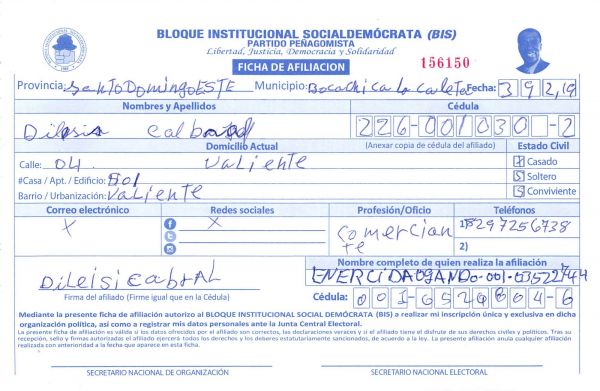 BLOQUE INSTITUCIONAL SOCIALDEMÓCRATA (BIS)
PARTIDO PEÑAGOMISTA
Libertad, Justicia, Democracia y Solidaridad
FICHA DE AFILIACION
156150
Provincia: Santo Domingo ESTE Municipio: Bocachica La Caleta Fecha: 3 9 2,19
Nombres y Apellidos Cédula
226-001030-2
Domicilio Actual (Anexar copia de cédula del afiliado) Estado Civil
Calle: 04 Valiente Casado
#Casa / Apt. / Edificio: Soltero
Barrio / Urbanización: Valiente Conviviente
Correo electrónico Redes sociales Profesión/Oficio Teléfonos
X X Comercian
te
1) 8297256738
2)
Nombre completo de quien realiza la afiliación
DiLeisi CabRAL
Firma del afiliado (Firme igual que en la Cédula) Cédula:
Mediante la presente ficha de afiliación autorizo al BLOQUE INSTITUCIONAL SOCIAL DEMÓCRATA (BIS) a realizar mi inscripción única y exclusiva en dicha
organización política, así como a registrar mis datos personales ante la Junta Central Electoral.
La presente ficha de afiliación es válida si los datos ofrecidos por el afiliado son correctos, las declaraciones veraces y si el afiliado tiene el disfrute de sus derechos civiles y políticos. Tras su
recepción, sello y firmas autorizadas el afiliado ejercerá todos los derechos y los deberes estatutariamente sancionados, de acuerdo a la ley. La presente afiliación anula cualquier afiliación
realizada con anterioridad a la fecha que aparece en esta ficha.
SECRETARIO NACIONAL DE ORGANIZACIÓN SECRETARIO NACIONAL ELECTORAL